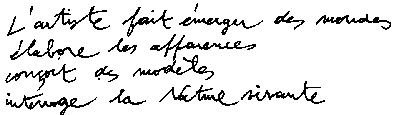 L'artiste fait émerger des mondes
élabore les apparences
conçoit des modèles
interroge la Nature vivante